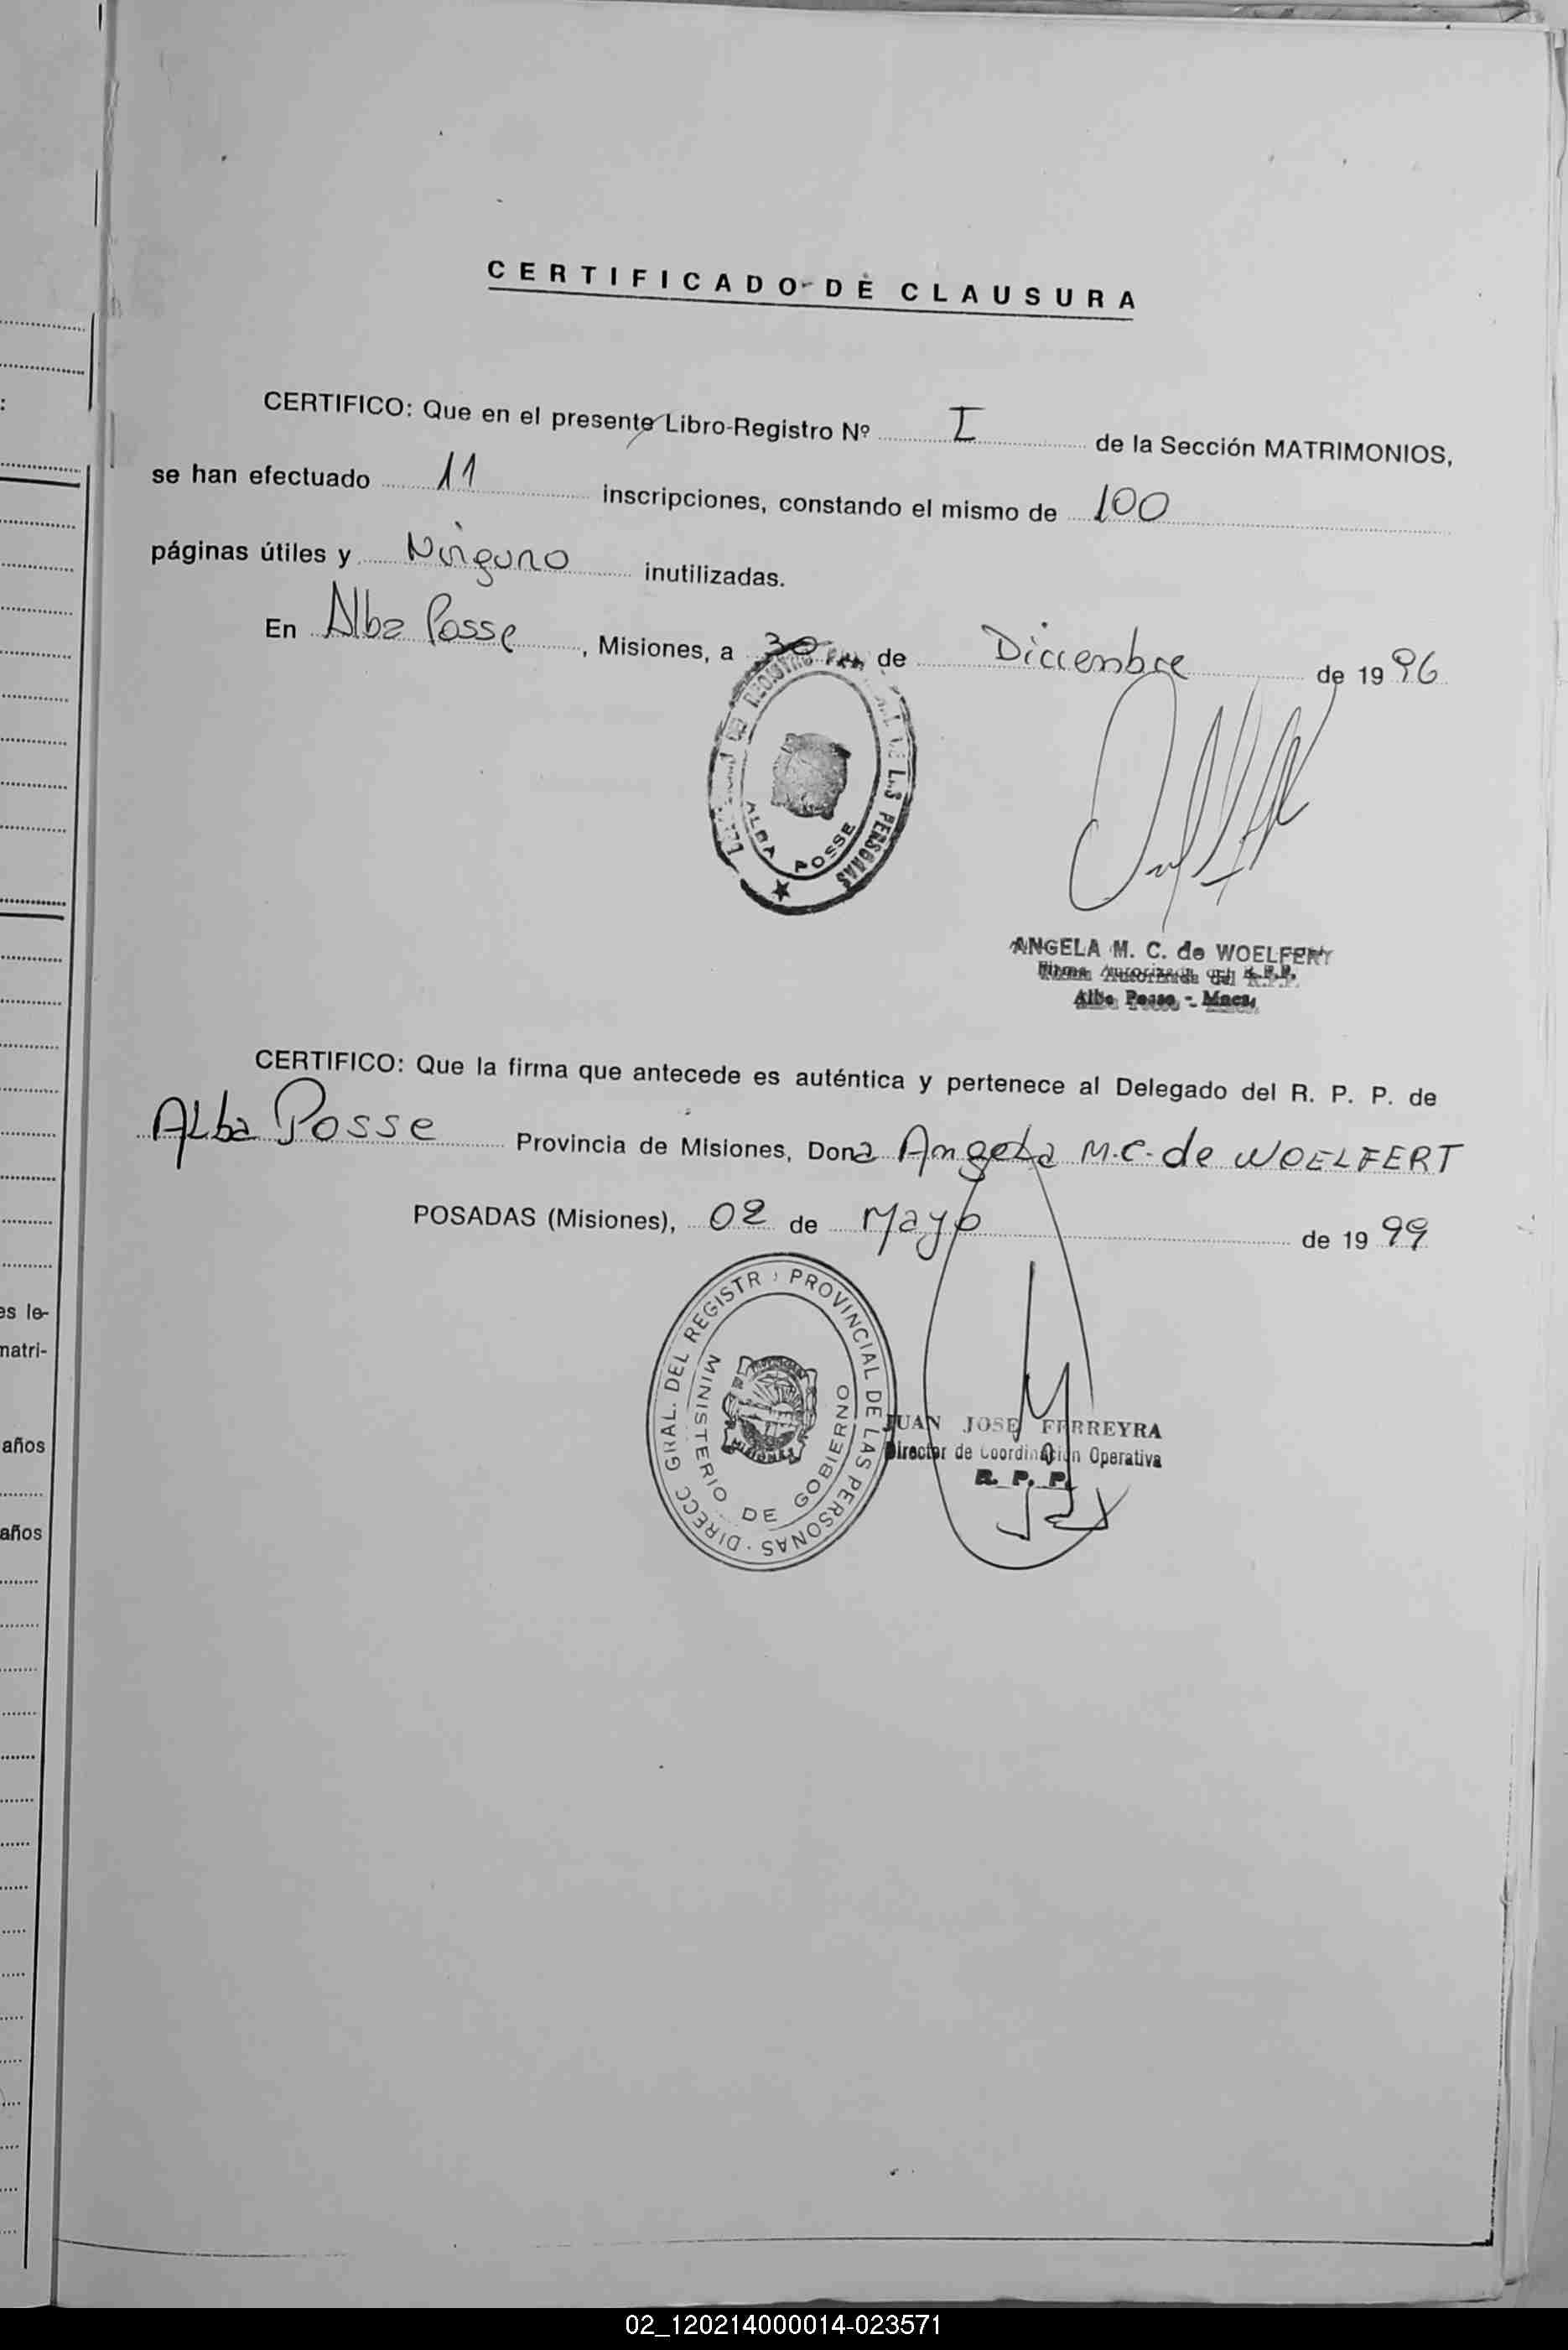 CERTIFICADO DE CLAUSURA
CERTIFICO: Que en el presente Libro-Registro Nº I de la Sección MATRIMONIOS,
se han efectuado 11 inscripciones, constando el mismo de 100
páginas útiles y Ninguno inutilizadas.
En Alba Posse, Misiones, a 30 de Diciembre de 1996
REGISTRO DE LAS PERSONAS
ALBA POSSE
ANGELA M. C. de WOELFERT
Firma Autorizada del R.P.P.
Alba Posse - Mnes.
CERTIFICO: Que la firma que antecede es auténtica y pertenece al Delegado del R. P. P. de
Alba Posse Provincia de Misiones, Dona Angela M.C. de WOELFERT
POSADAS (Misiones), 02 de Mayo de 1999
DIRECC GRAL. DEL REGISTR PROVINCIAL DE LAS PERSONAS
MINISTERIO DE GOBIERNO
MISIONES
JUAN JOSE FERREYRA
Director de Coordinación Operativa
R. P. P.
es le-
matri-
años
años
02_120214000014-023571